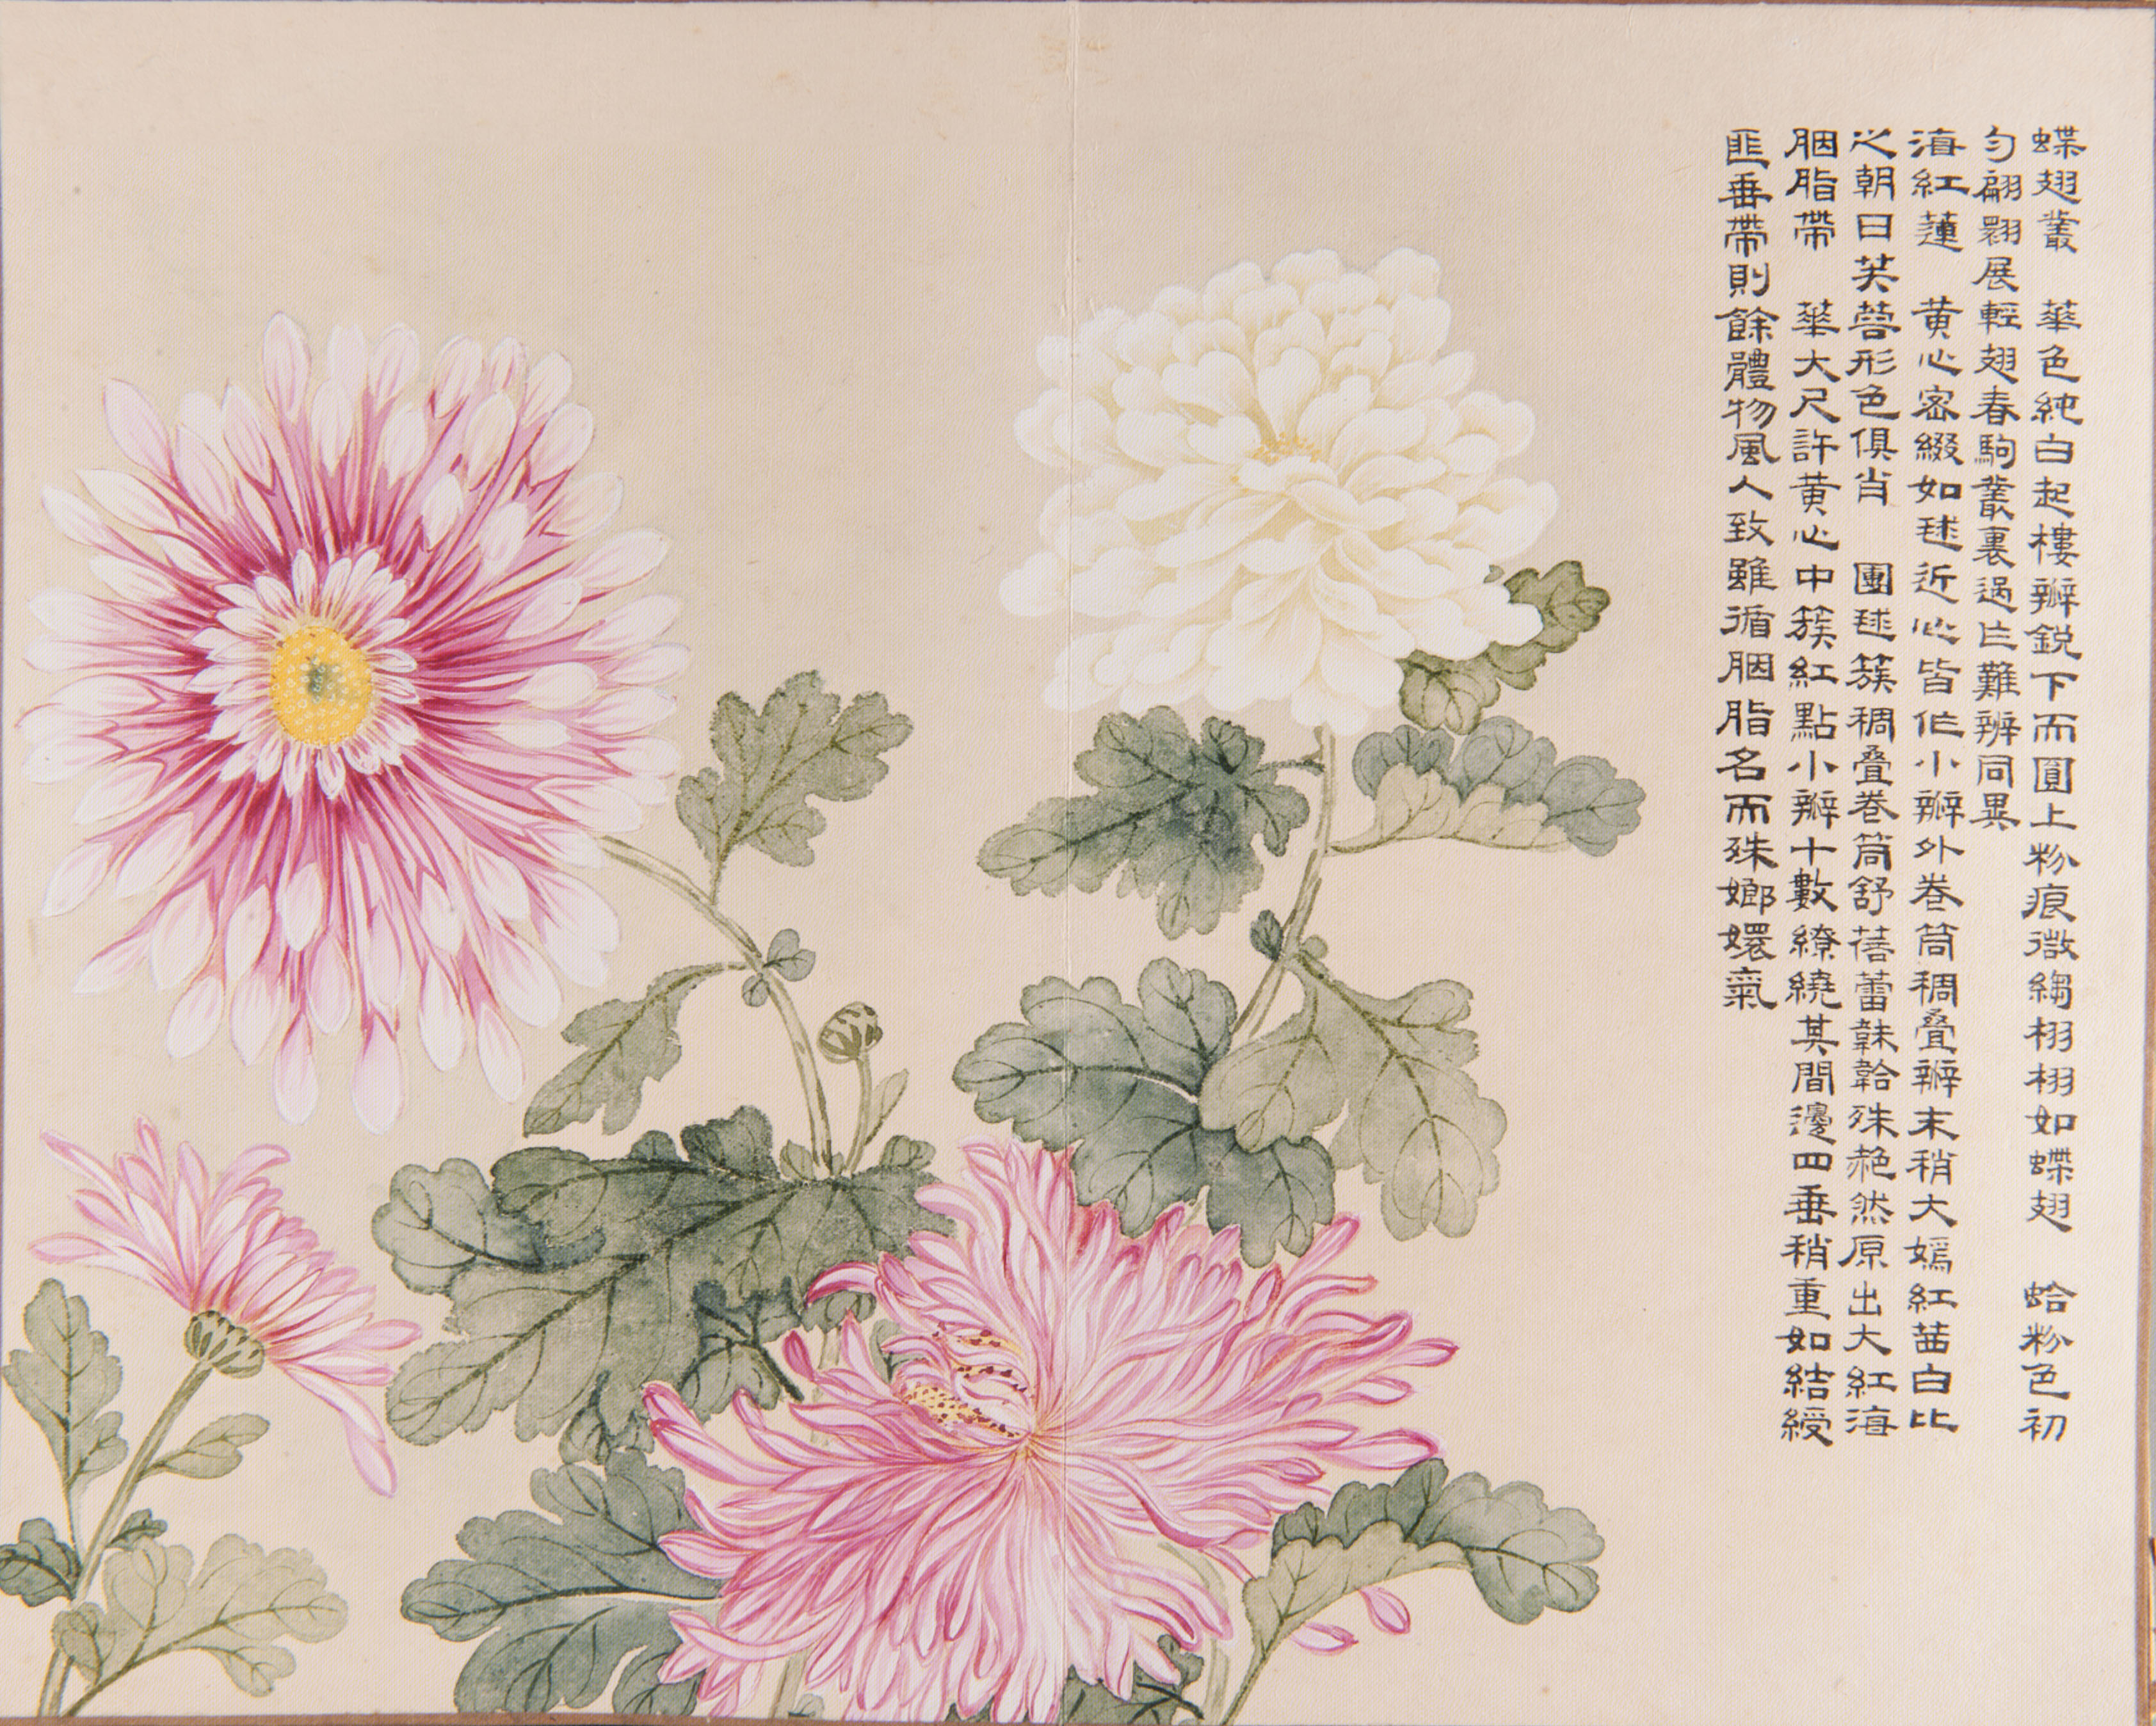 蝶翅叢　華色純白起樓瓣銳下而圓上粉痕微縐栩栩如蝶翅　蛤粉色初
勻翩翾展輕翅春駒叢裏過亡難辨同異
海紅蓮　黃心密綴如毬近心皆作小瓣外卷筒稠疊瓣末稍大嫣紅茜白比
之朝日芙蓉形色俱肖　團毬簇稠疊卷筒舒蓓蕾韎韐殊赩然原出大紅海
胭脂帶　華大尺許黃心中簇紅點小瓣十數繚繞其間邊四垂稍重如結綬
匪垂帶則餘體物風人致雖循胭脂名而殊嫏嬛氣